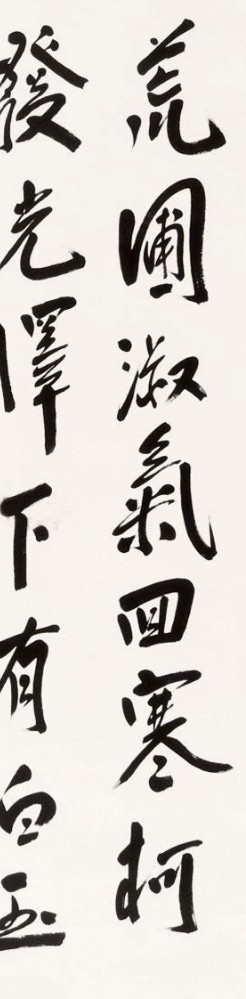 荒圃淑氣回寒柯
發光澤下有白玉